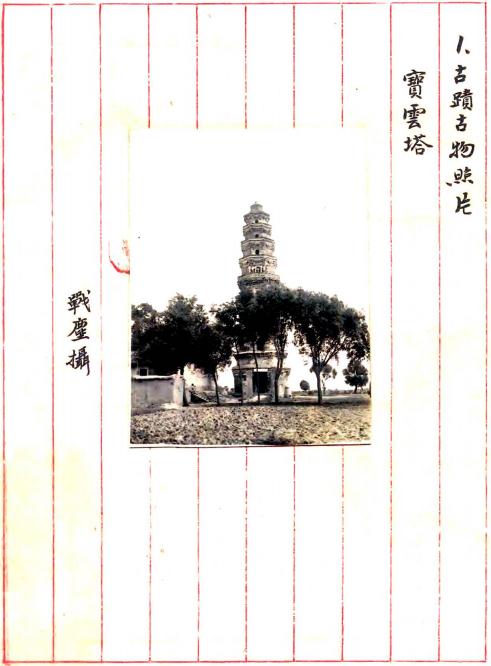 1、古蹟古物照片
寶雲塔
戰塵攝